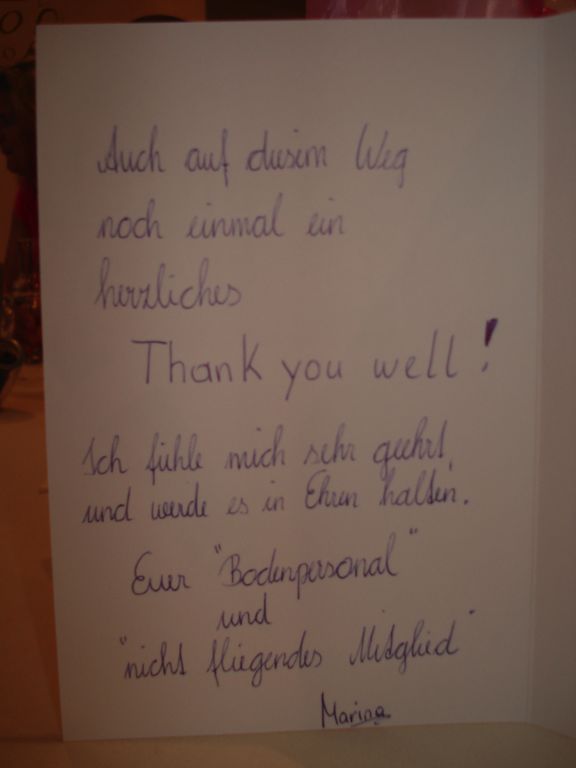 Auch auf diesem Weg
noch einmal ein
herzliches
Thank you well!
Ich fühle mich sehr geehrt
und werde es in Ehren halten.
Euer "Bodenpersonal"
und
"nicht fliegendes Mitglied"
Marina